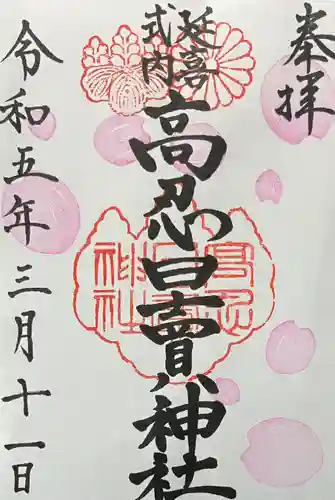 奉拝
延喜
式内
高忍日賣神社
高忍
日賣
神社
令和五年三月十一日